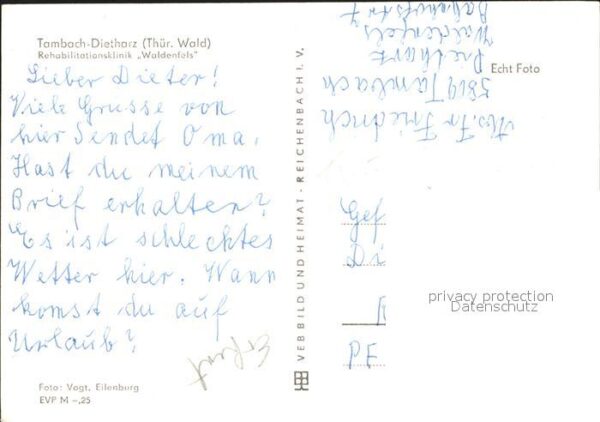 Tambach-Dietharz (Thür. Wald)
Rehabilitationsklinik „Waldenfels"
Lieber Dieter!
Viele Grusse von
hier Sendet Oma.
Hast du meinem
Brief erhalten?
Es ist schlechtes
Wetter hier. Wann
komst du auf
Urlaub?
Foto: Vogt, Eilenburg
EVP M –,25
VEB BILD UND HEIMAT · REICHENBACH I. V.
Echt Foto
Abs. Fr Friedrich
5809 Tambach
Dietharz
Waldenfels
Bahnhofstr 7
Gef
Erfurt
privacy protection
Datenschutz